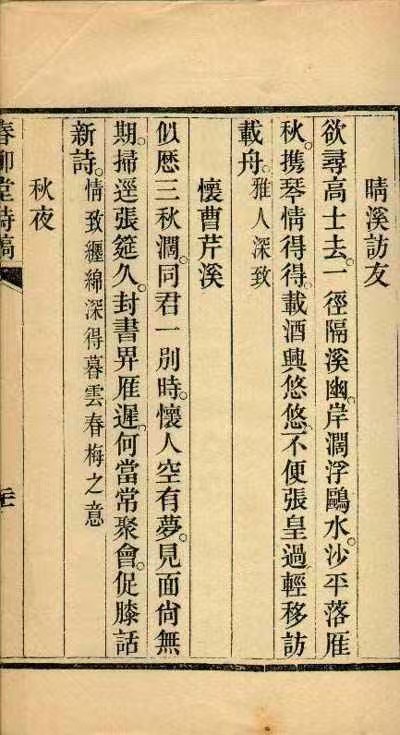 晴溪訪友
欲尋高士去。一徑隔溪幽。岸濶浮鷗水。沙平落雁
秋。携琴情得得。載酒興悠悠。不便張皇過。輕移訪
載舟。雅人深致
懷曹芹溪
似歴三秋濶。同君一別時。懷人空有夢。見面尙無
期。掃逕張筵久。封書畀雁遲。何當常聚會。促膝話
新詩。情致纏綿深得暮雲春梅之意
秋夜
春柳堂詩稿